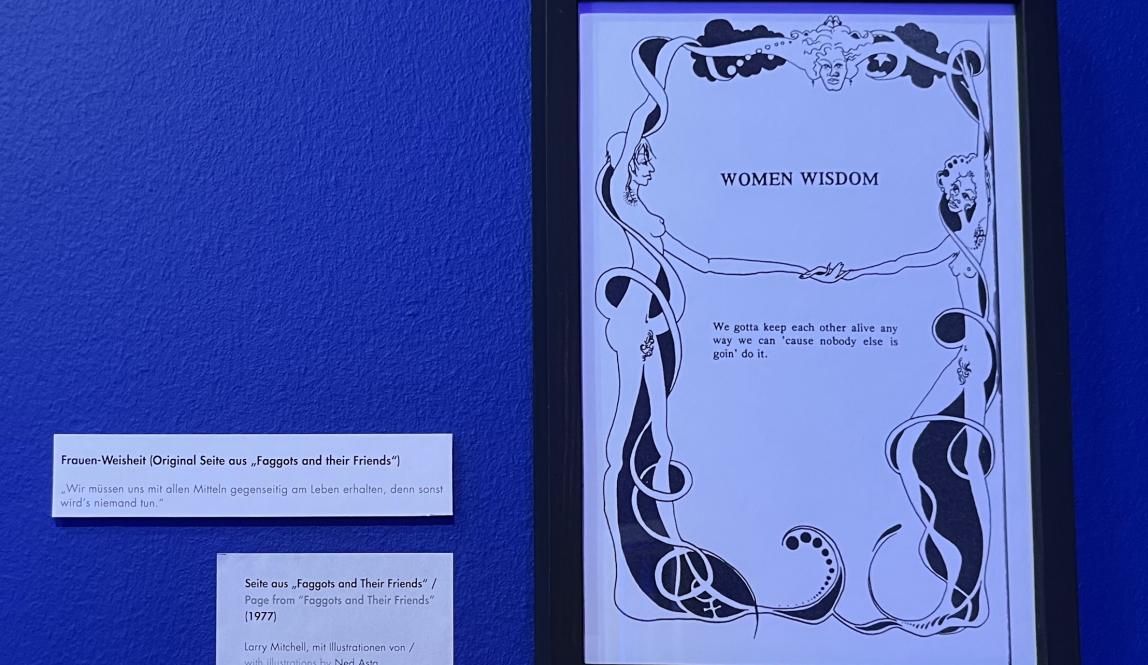 WOMEN WISDOM
We gotta keep each other alive any
way we can 'cause nobody else is
goin' do it.
Frauen-Weisheit (Original Seite aus „Faggots and their Friends“)
„Wir müssen uns mit allen Mitteln gegenseitig am Leben erhalten, denn sonst
wird's niemand tun.“
Seite aus „Faggots and Their Friends“ /
Page from “Faggots and Their Friends”
(1977)
Larry Mitchell, mit Illustrationen von /
with illustrations by Ned Asta